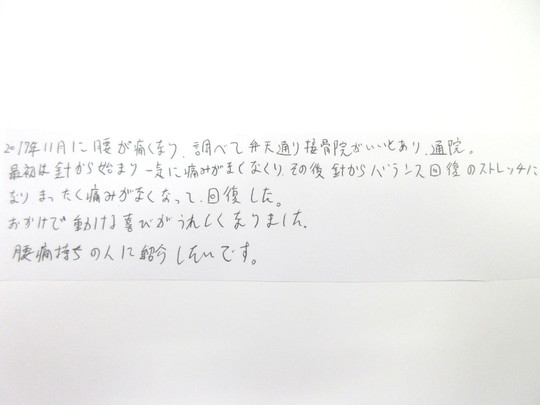 2017年11月に腰が痛くなり、調べて弁天通り接骨院がいいとあり、通院。
最初は針から始まり一気に痛みがなくなり、その後針からバランス回復のストレッチに
なりまったく痛みがなくなって、回復した。
おかげで動ける喜びがうれしくなりました。
腰痛持ちの人に紹介したいです。